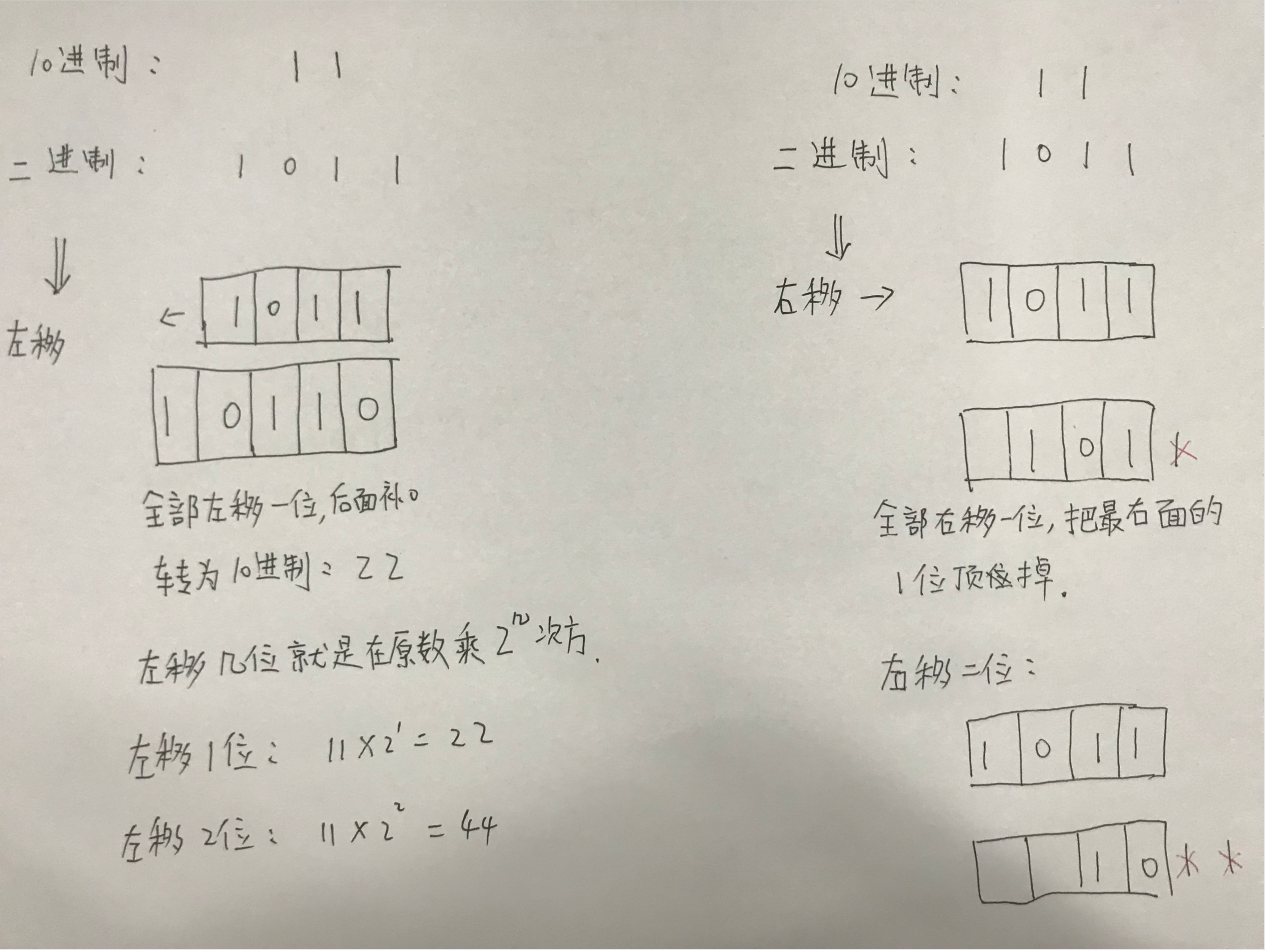 10进制： 11
二进制： 1011
左移
← 1011
10110
全部左移一位,后面补0
转为10进制：22
左移几位就是在原数乘2ⁿ次方.
左移1位： 11×2¹=22
左移2位： 11×2²=44
10进制： 11
二进制： 1011
右移→ 1011
101
全部右移一位,把最右面的
1位顶掉.
右移二位：
1011
10